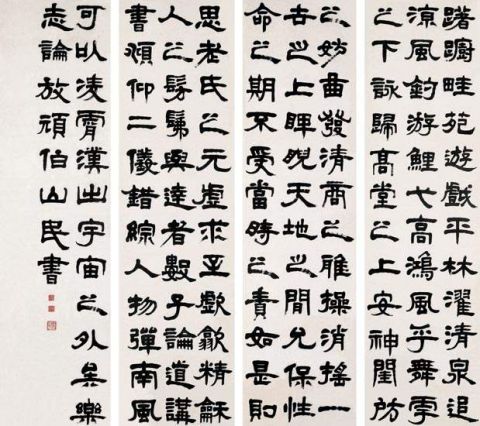 躊躇畦苑游戲平林濯清泉追
涼風釣游鯉弋高鴻風乎舞雩
之下詠歸高堂之上安神閨房
之妙曲發清商之雅操消搖一
世之上睥睨天地之間永保性
命之期不受當時之責如是則
思老氏之元虛求至歙精龢
人之髣髴與達者數子論道講
書頫仰二儀錯綜人物彈南風
可以凌霄漢出宇宙之外矣樂
志論放頑伯山民書